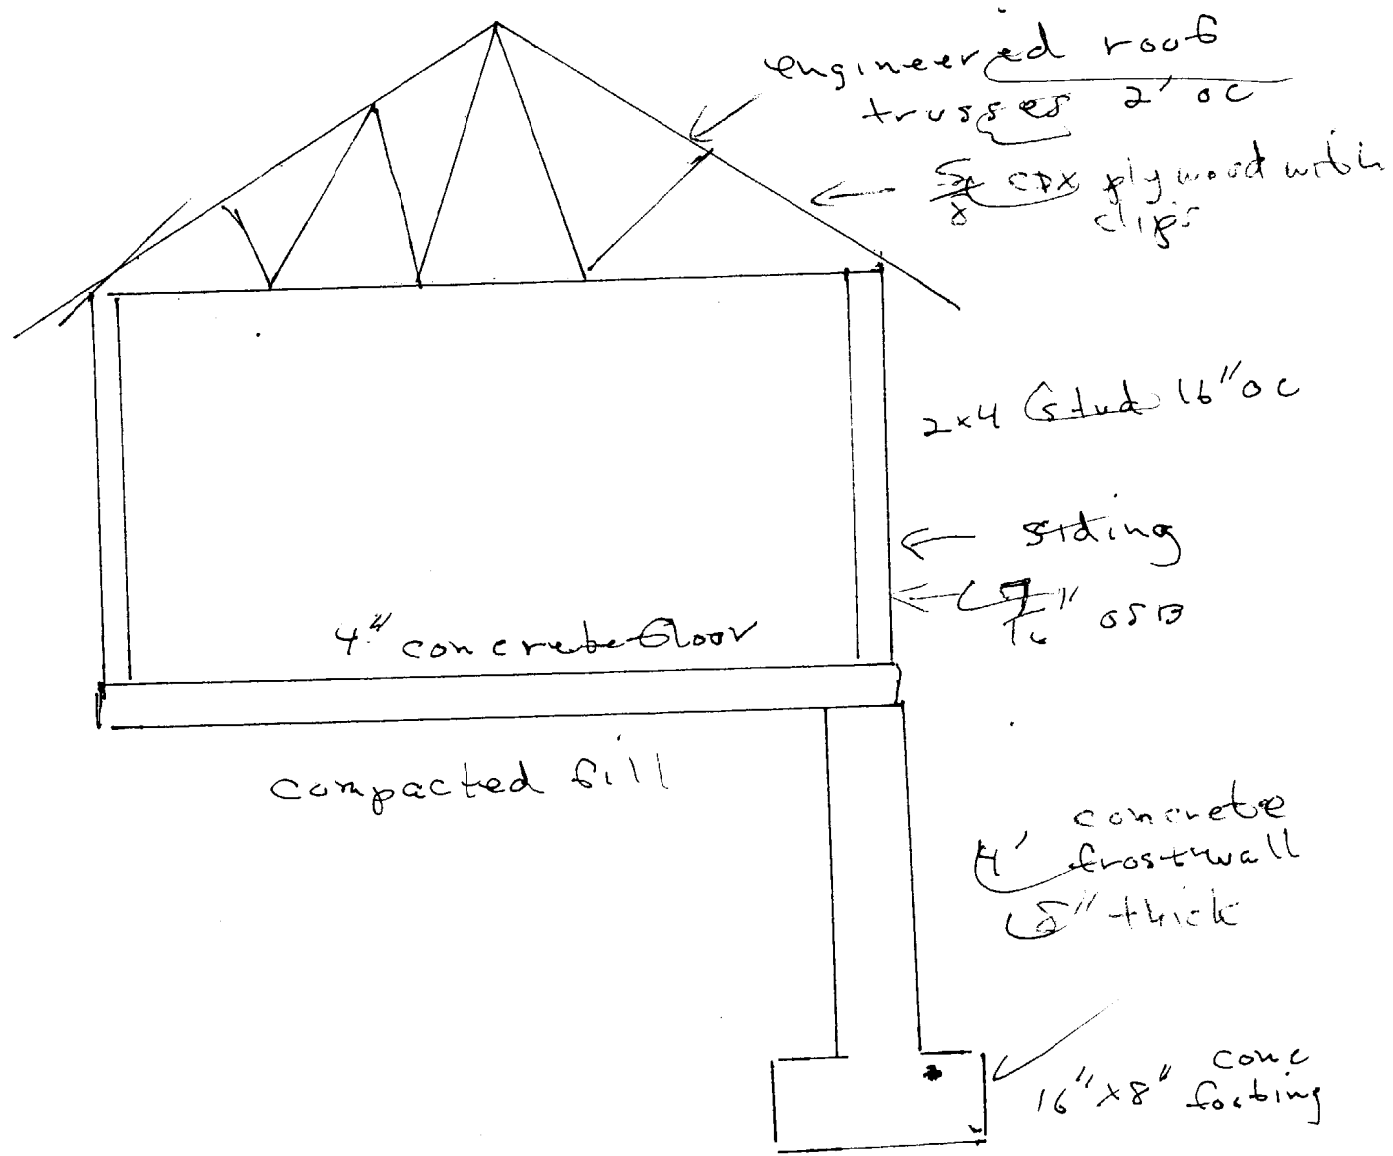 engineered roof
trusses 2' oc
5/8 CDX plywood with
clips
2x4 stud 16" oc
siding
7/16" OSB
4" concrete floor
compacted fill
concrete
4' frostwall
8" thick
16"x8" conc
footing